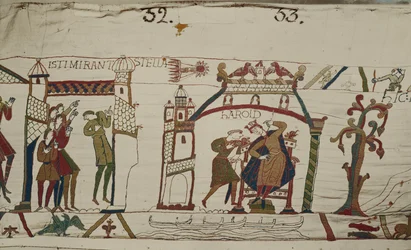 52. 53.
ISTI MIRANT STELLA
HAROLD